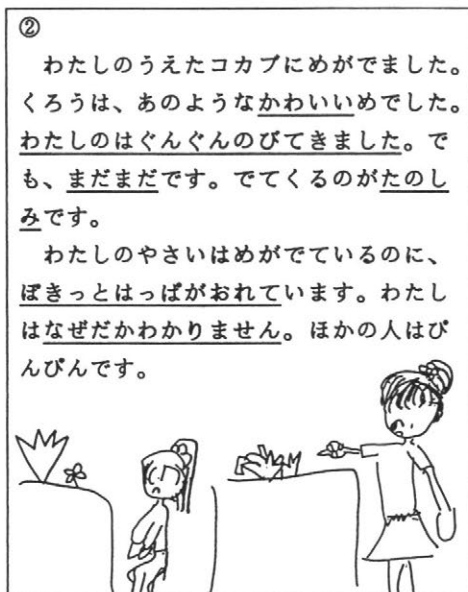 ②
わたしのうえたコカブにめがでました。
くろうは、あのようなかわいいめでした。
わたしのはぐんぐんのびてきました。で
も、まだまだです。でてくるのがたのし
みです。
わたしのやさいはめがでているのに、
ぽきっとはっぱがおれています。わたし
はなぜだかわかりません。ほかの人はぴ
んぴんです。